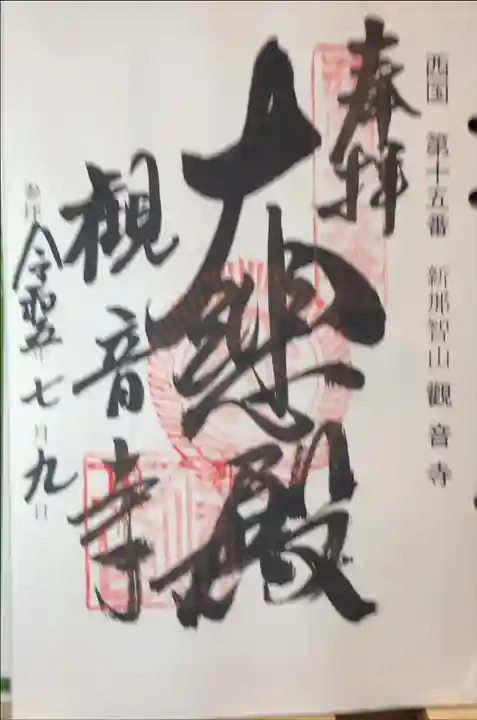 西国 第十五番 新那智山 観音寺
奉拝
大悲殿
観音寺
令和五年七月九日